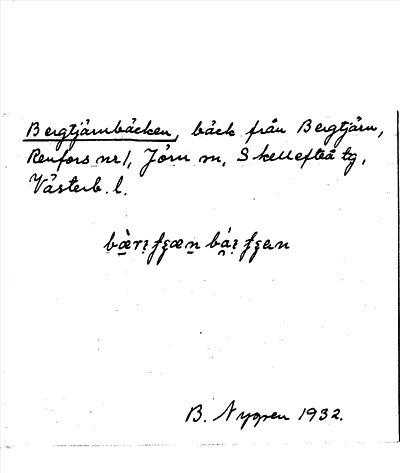 Bergtjärnbäcken, bäck från Bergtjärn,
Renfors nr 1, Jörn sn, Skellefteå tg,
Västerb. l.
B. Nygren 1932.